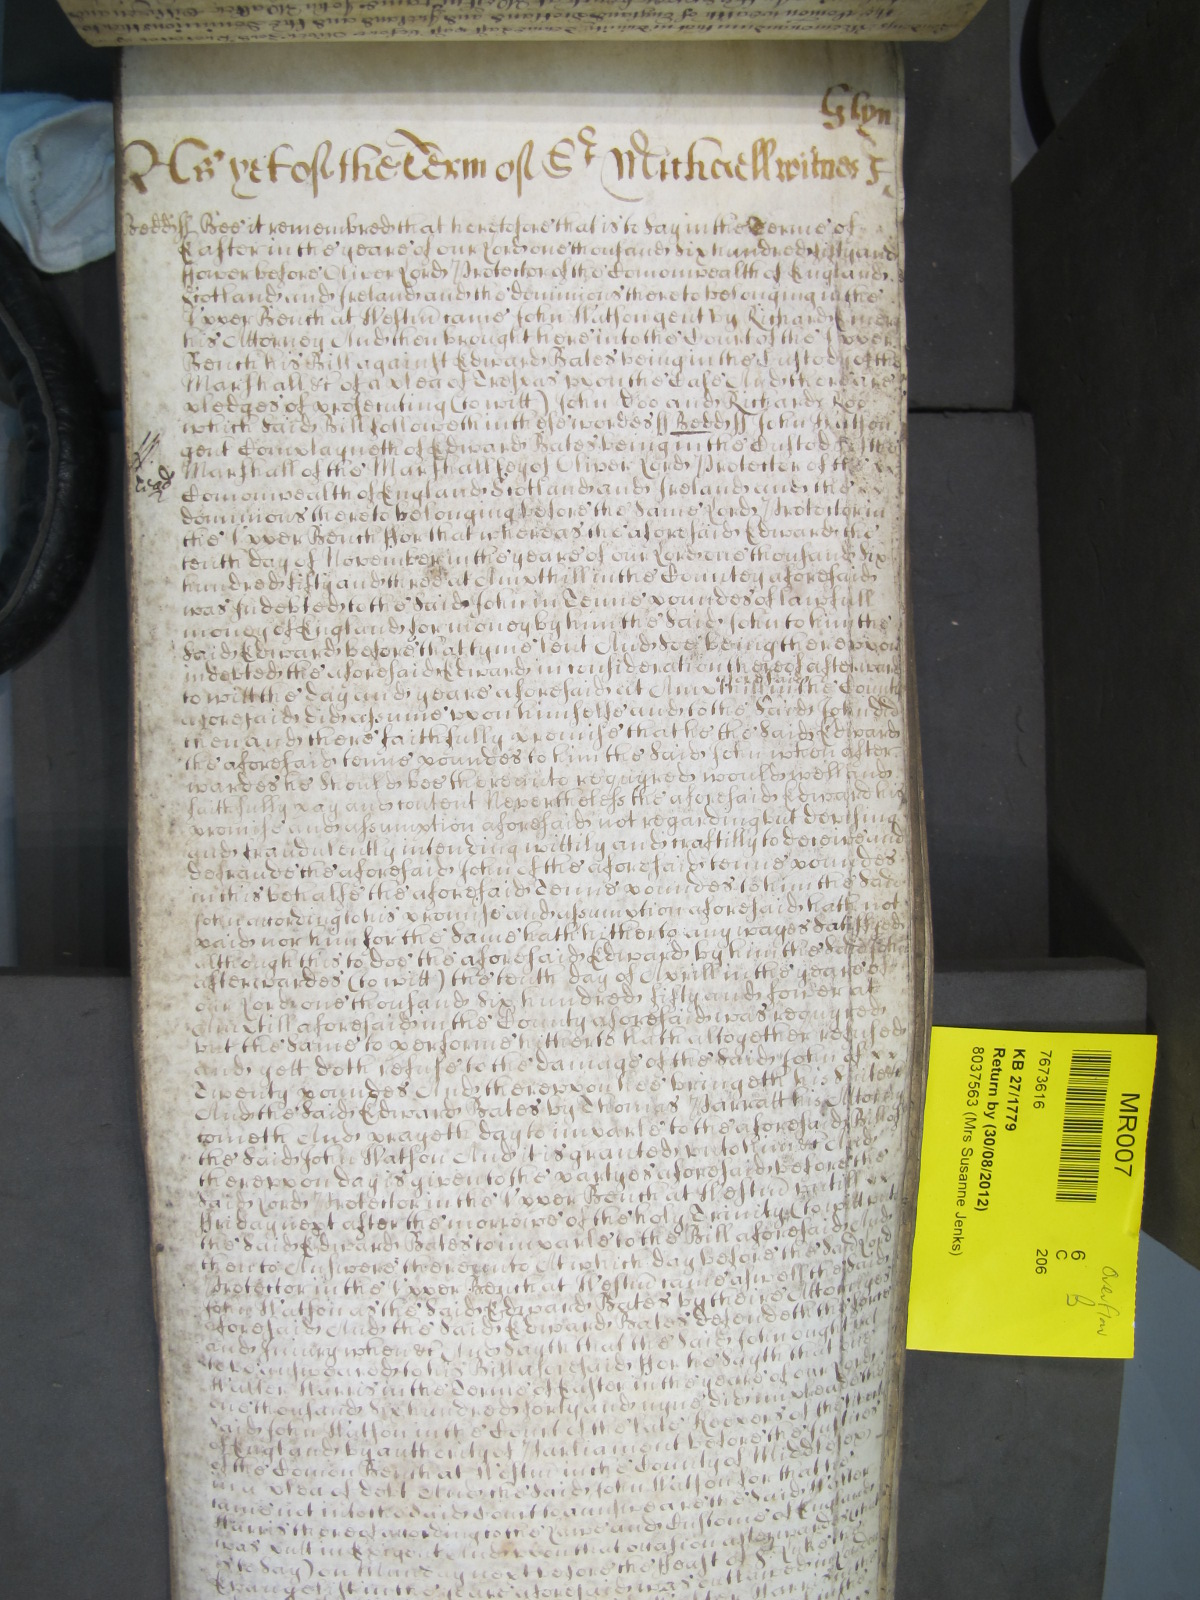 Glyn
As yet of the Terme of St Michaell witnes
Bedd ss Bee it remembred that heretofore that is to say in the Terme of
Easter in the yeare of our Lord one thousand six hundred fifty and
ffower before Oliver Lord Protector of the Comonwealth of England
Scotland and Ireland and the dominions thereto belonging in the
Upper Bench at Westm came John Watson gent by Richard
his Attorney And then brought here into the Court of the Upper
Bench his Bill against Edward Bates being in the Custody of the
Marshall &c of a plea of Trespas upon the Case And there are
pledges of prosecuting (to witt) John Doo and Richard Roo
which said Bill followeth in these wordes ss Bedd ss John Watson
gent Complayneth of Edward Bates being in the Custody of the
Marshall of the Marshallsey of Oliver Lord Protector of the
Comonwealth of England Scotland and Ireland and the
dominions thereto belonging before the same Lord Protector in
the Upper Bench ffor that whereas the aforesaid Edward the
tenth day of November in the yeare of our Lord one thousand six
hundred fifty and three at Ampthill in the Countey aforesaid
was Indebted to the said John in Tenne poundes of lawfull
money of England for money by him the said John to him the
said Edward before that tyme lent And soe being thereupon
indebted the aforesaid Edward in consideration thereof afterward
to witt the day and yeare aforesaid at Ampthill aforesaid in the County
aforesaid did assume upon himselfe and to the said John did
then and there faithfully promise that he the said Edward
the aforesaid tenne poundes to him the said John when after
wardes he should bee thereunto requyred would well and
faithfully pay and content Neverthelesse the aforesaid Edward his
promise and assumption aforesaid not regarding but devising
and fraudulently intending wittily and craftilly to deceive and
defraude the aforesaid John of the aforesaid tenne poundes
in this behalfe the aforesaid Tenne poundes to him the said
John according to his promise and assumption aforesaid hath not
paid nor him for the same hath hitherto any wayes satisfyed
although this to doe the aforesaid Edward by him the said John
afterwardes (to witt) the tenth day of Aprill in the yeare of
our Lord one thousand six hundred fifty and fower at
Ampthill aforesaid in the County aforesaid was requyred
but the same to performe hitherto hath altogether refused
and yett doth refuse to the damage of the said John of
Twenty poundes And thereupon hee bringeth his suite
And the said Edward Bates by Thomas Parratt his Attorny
cometh And prayeth day to imparle to the aforesaid Bill of
the said John Watson And it is granted unto him &c And
thereupon day is given to the partyes aforesaid before the
said Lord Protector in the Upper Bench at Westm untill
ffriday next after the morrowe of the holy Trinity (to witt)
the said Edward Bates to imparle to the Bill aforesaid And
then to Answere thereunto At which day before the said Lord
Protector in the Upper Bench at Westm came aswell the said
John Watson as the said Edward Bates by theire Attornyes
aforesaid And the said Edward Bates defendeth the force
and Iniury when &c And sayth that the said John ought not
to bee answeared to his Bill aforesaid ffor he sayth that one
Walter Harris in the Terme of Easter in the yeare of our Lord
one thousand six hundred forty and nyne did implead the
said John Watson in the Court of the late Keepers of the liberty
of England by authority of Parliament before the Justices
of the Comon Bench at Westm in the County of Middlesex
in a plea of debt And the said John Watson for that he
came not into the said Court to answeare the said Walter
Harris thereof according to the Lawe and Custome of England
was putt in Exigent And upon that occasion afterwardes
is to say) on Munday next before the ffeast of St Luke the
Evangelist in the yeare aforesaid was outlawed
MR007
7673616
KB 27/1779
Return by (30/08/2012)
8037563 (Mrs Susanne Jenks)
6
C
206
Overflow
B